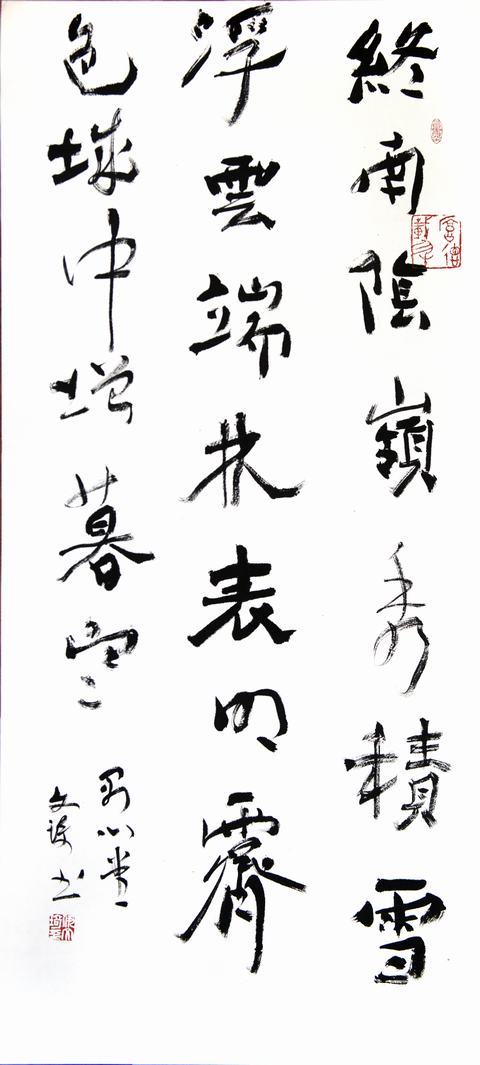 終南陰嶺秀積雪
浮雲端林表明霽
色城中增暮寒
心堂
文书